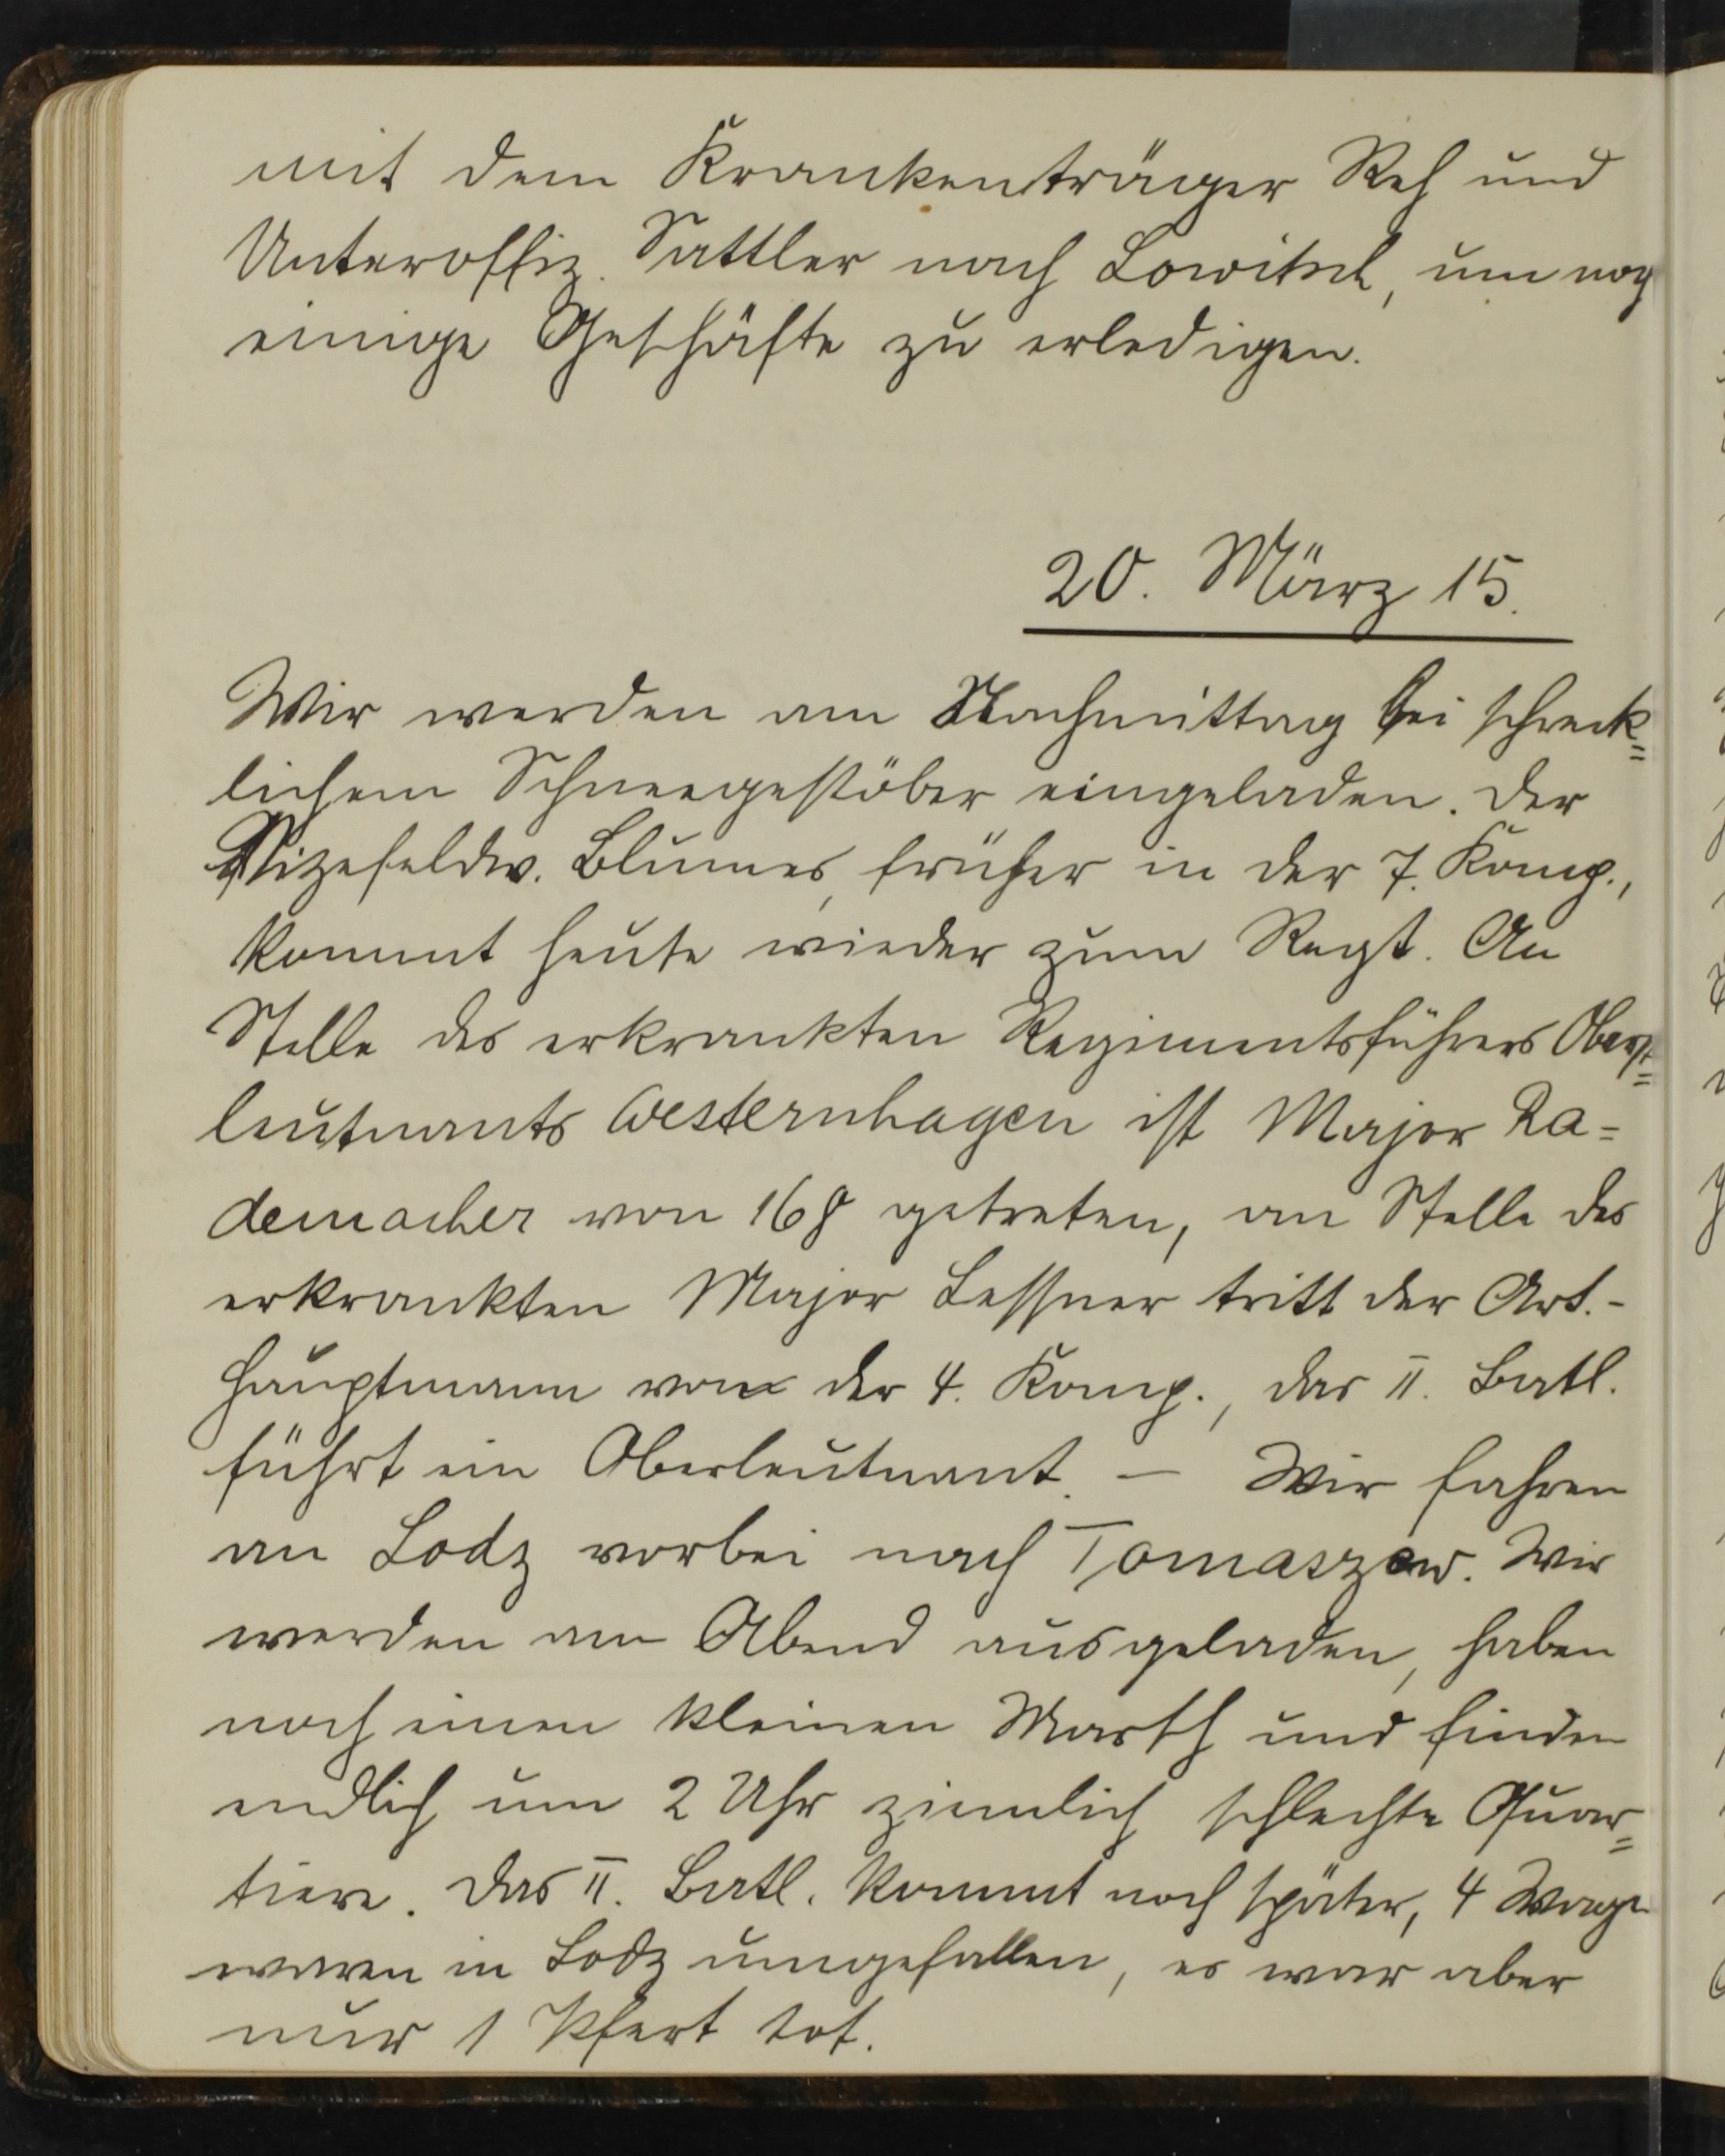 mit dem Krankenträger Reh und
Unteroffiz. Sattler nach Lowitsch, um noch
einige Geschäfte zu erledigen.
20. März 15.
Wir werden am Nachmittag bei schreck=
lichem Schneegestöber eingeladen. Der
Vizefeldw. Blumes, früher in der 7. Komp.,
kommt heute wieder zum Regt. An
Stelle des erkrankten Regimentsführers Oberst=
leutnants Westernhagen ist Major Ra=
demacher von 168 getreten, an Stelle des
erkrankten Major Lessner tritt der Art.-
Hauptmann von der 4. Komp., das II. Batl.
führt ein Oberleutnant. – Wir fahren
an Lodz vorbei nach Tomaszow. Wir
werden am Abend ausgeladen, haben
noch einen kleinen Marsch und finden
endlich um 2 Uhr ziemlich schlechte Quar=
tiere. Das II. Batl. kommt noch später, 4 Wagen
waren in Lodz umgefallen, es war aber
nur 1 Pfert tot.